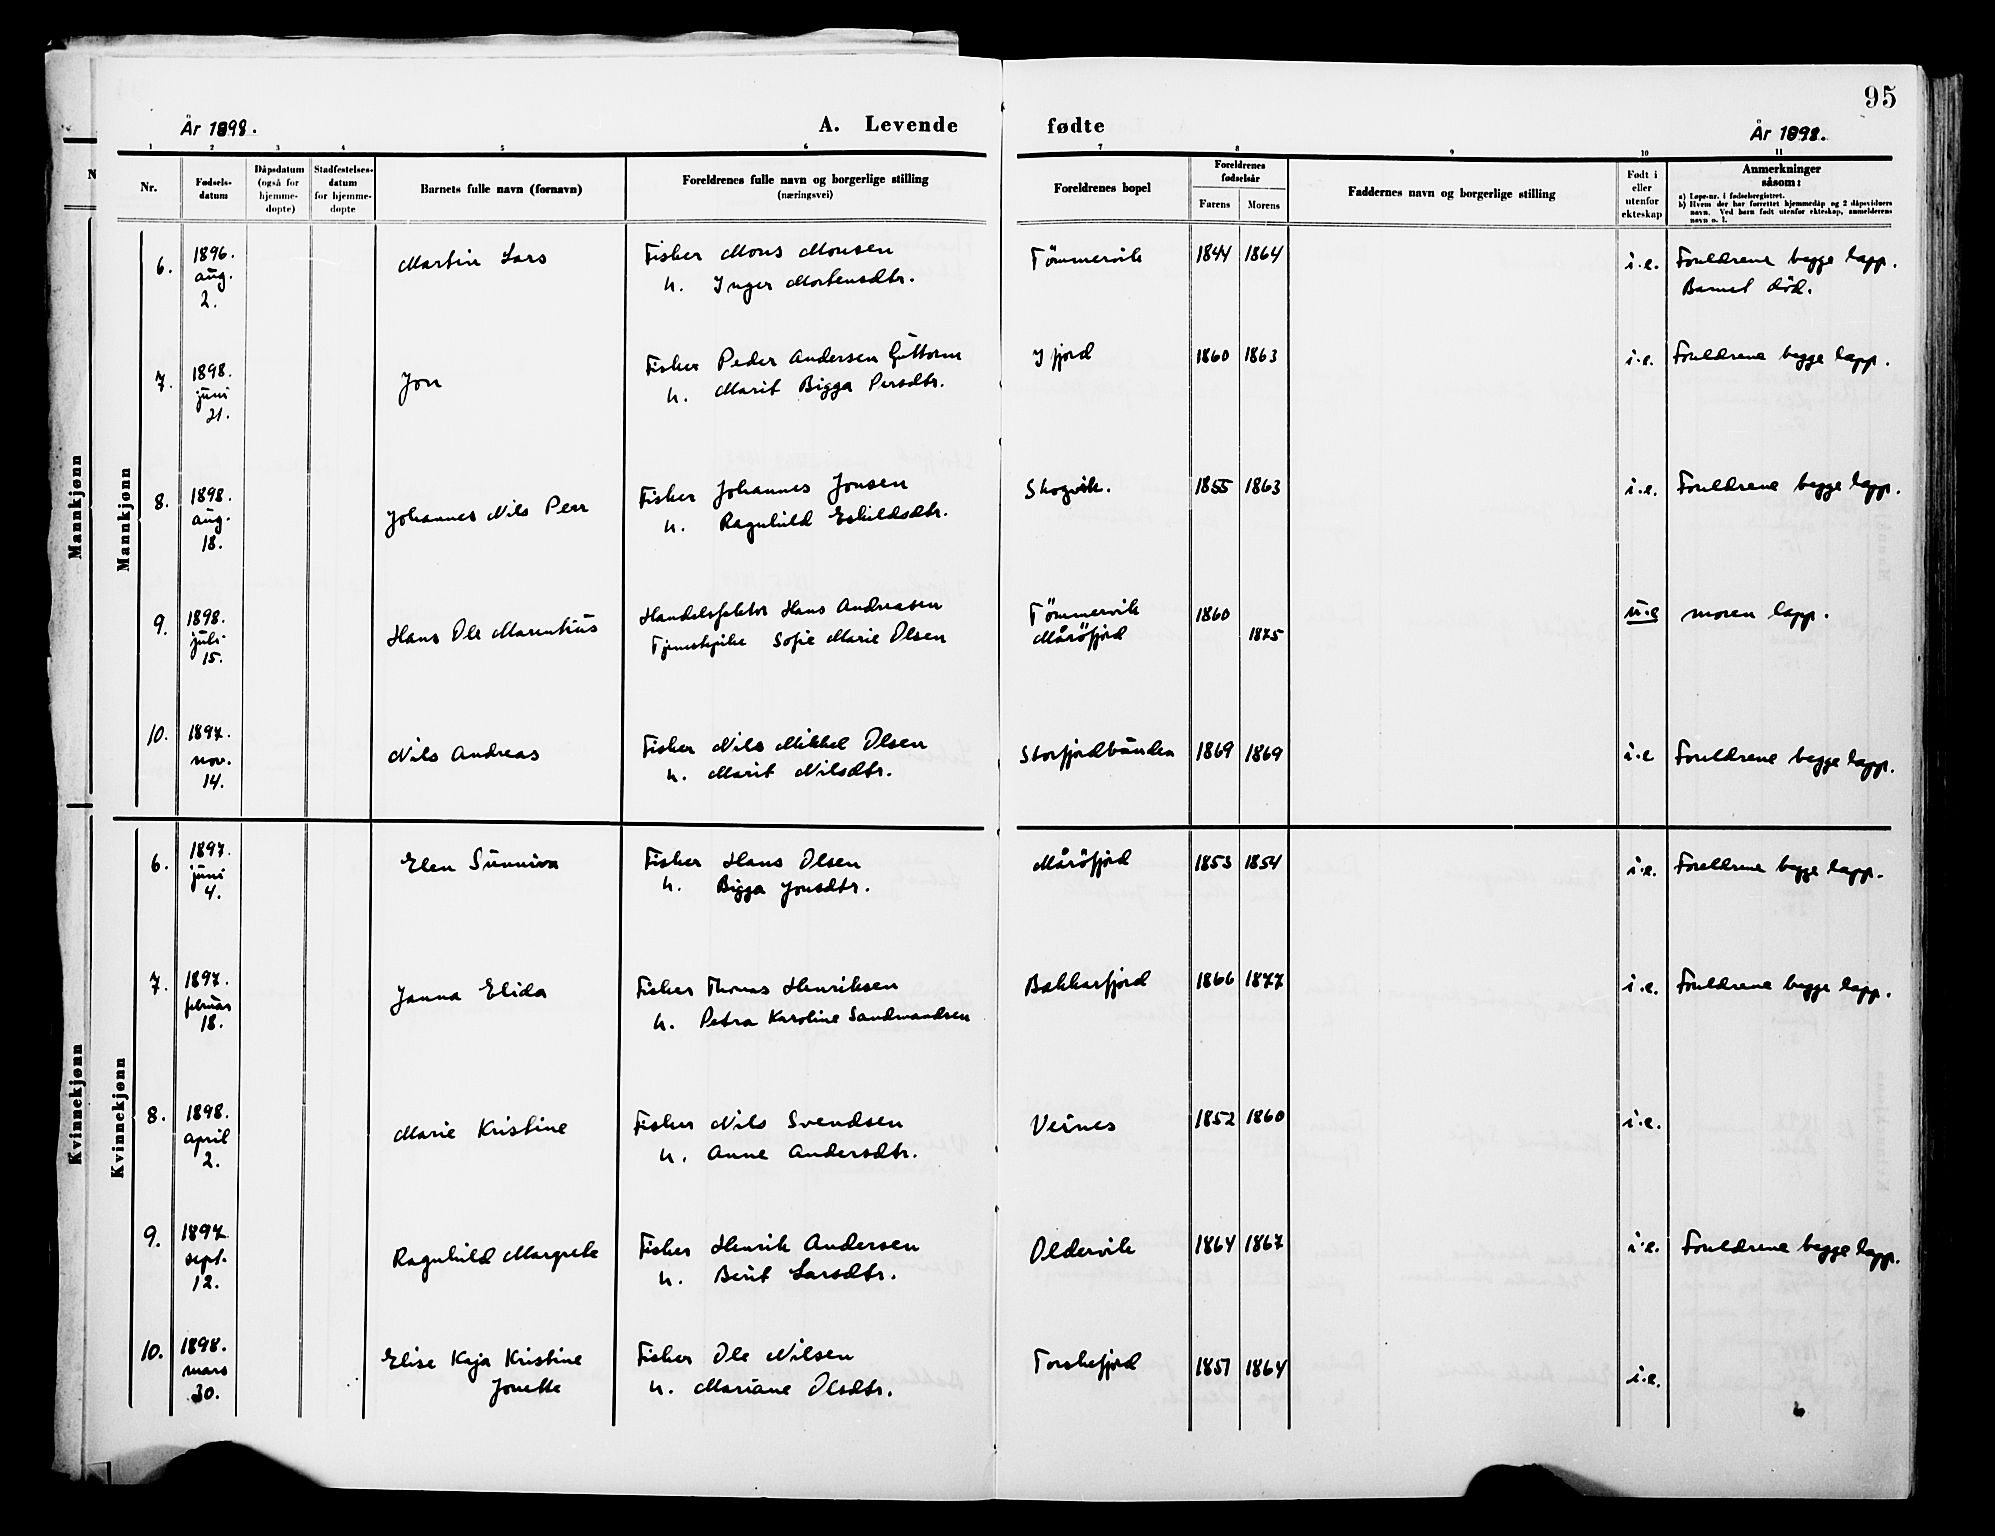 95
År 1898.
A. Levende
fødte
År 1898.
1 2 3 4 5 6 7 8 9 10 11
Nr.
Fødsels-
datum
Dåpsdatum
(også for
hjemme-
døpte)
Stadfestelses-
datum
for hjemme-
døpte
Barnets fulle navn (fornavn)
Foreldrenes fulle navn og borgerlige stilling
(næringsvei)
Foreldrenes bopel
Foreldrenes
fødselsår
Farens Morens
Faddernes navn og borgerlige stilling
Født i
eller
utenfor
ekteskap
Anmerkninger
såsom:
a) Løpe-nr. i fødselsregistret.
b) Hvem der har forrettet hjemmedåp og 2 dåpsvidners
navn. Ved barn født utenfor ekteskap, anmelderens
navn o. l.
N
Mannkjønn
Kvinnekjønn
Mannkjønn
6. 1896. aug. 2. Martin Lars Fisker Mons Monsen Tømmervik 1844 1864 i.e. Foreldrene begge lapp.
h. Inger Mortensdtr. Barnet død.
7. 1898. juni 21. Jon Fisker Peder Andersen Guttorm Ifjord 1860 1863 i.e. Foreldrene begge lapp.
h. Marit Bigga Persdtr.
8. 1898. aug. 18. Johannes Nils Perr Fisker Johannes Jonsen Skogvik. 1855 1863 i.e. Foreldrene begge lapp.
h. Ragnhild Eskildsdtr.
9. 1898. juli 15. Hans Ole Marentius Handelsfaktor Hans Andreasen Tømmervik 1860 u.e moren lapp.
Tjenestepike Sofie Marie Olsen Måröfjord 1875
10. 1897. nov. 14. Nils Andreas Fisker Nils Mikkel Olsen Storfjordbunden 1869 1869 i.e Foreldrene begge lapp.
h. Marit Nilsdtr.
Kvinnekjønn
6. 1897. juni 4. Elen Sunniva Fisker Hans Olsen Måröfjord 1853 1854 i.e. Foreldrene begge lapp.
h. Bigga Jonsdtr.
7. 1897. februar 18. Janna Elida Fisker Thomas Henriksen Bakkarfjord 1866 1877 i.e. Foreldrene begge lapp.
h. Petra Karoline Sandmandsen
8. 1898. april 2. Marie Kristine Fisker Nils Svendsen Veines 1852 1860 i.e.
h. Anne Andersdtr.
9. 1897. sept. 12. Ragnhild Margrete Fisker Henrik Andersen Oldervik 1864 1867 i.e. Foreldrene begge lapp.
h. Berit Larsdtr.
10. 1898. mars 30. Elise Kaja Kristine Fisker Ole Nilsen Torskefjord 1851 1864 i.e.
Jonette h. Mariane Olsdtr.